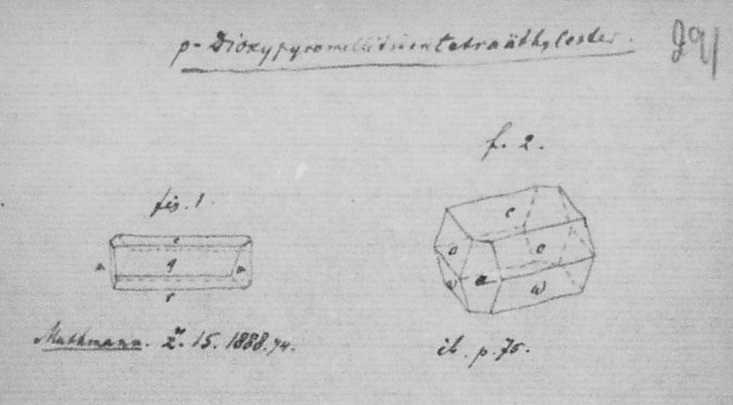 p-Dioxypyromellithsäuretetraäthylester.
291
fig. 1.
f. 2.
c
q
m
r
c
o
o
a
w
Muthmann. Z. 15. 1888. 74.
ib. p. 75.